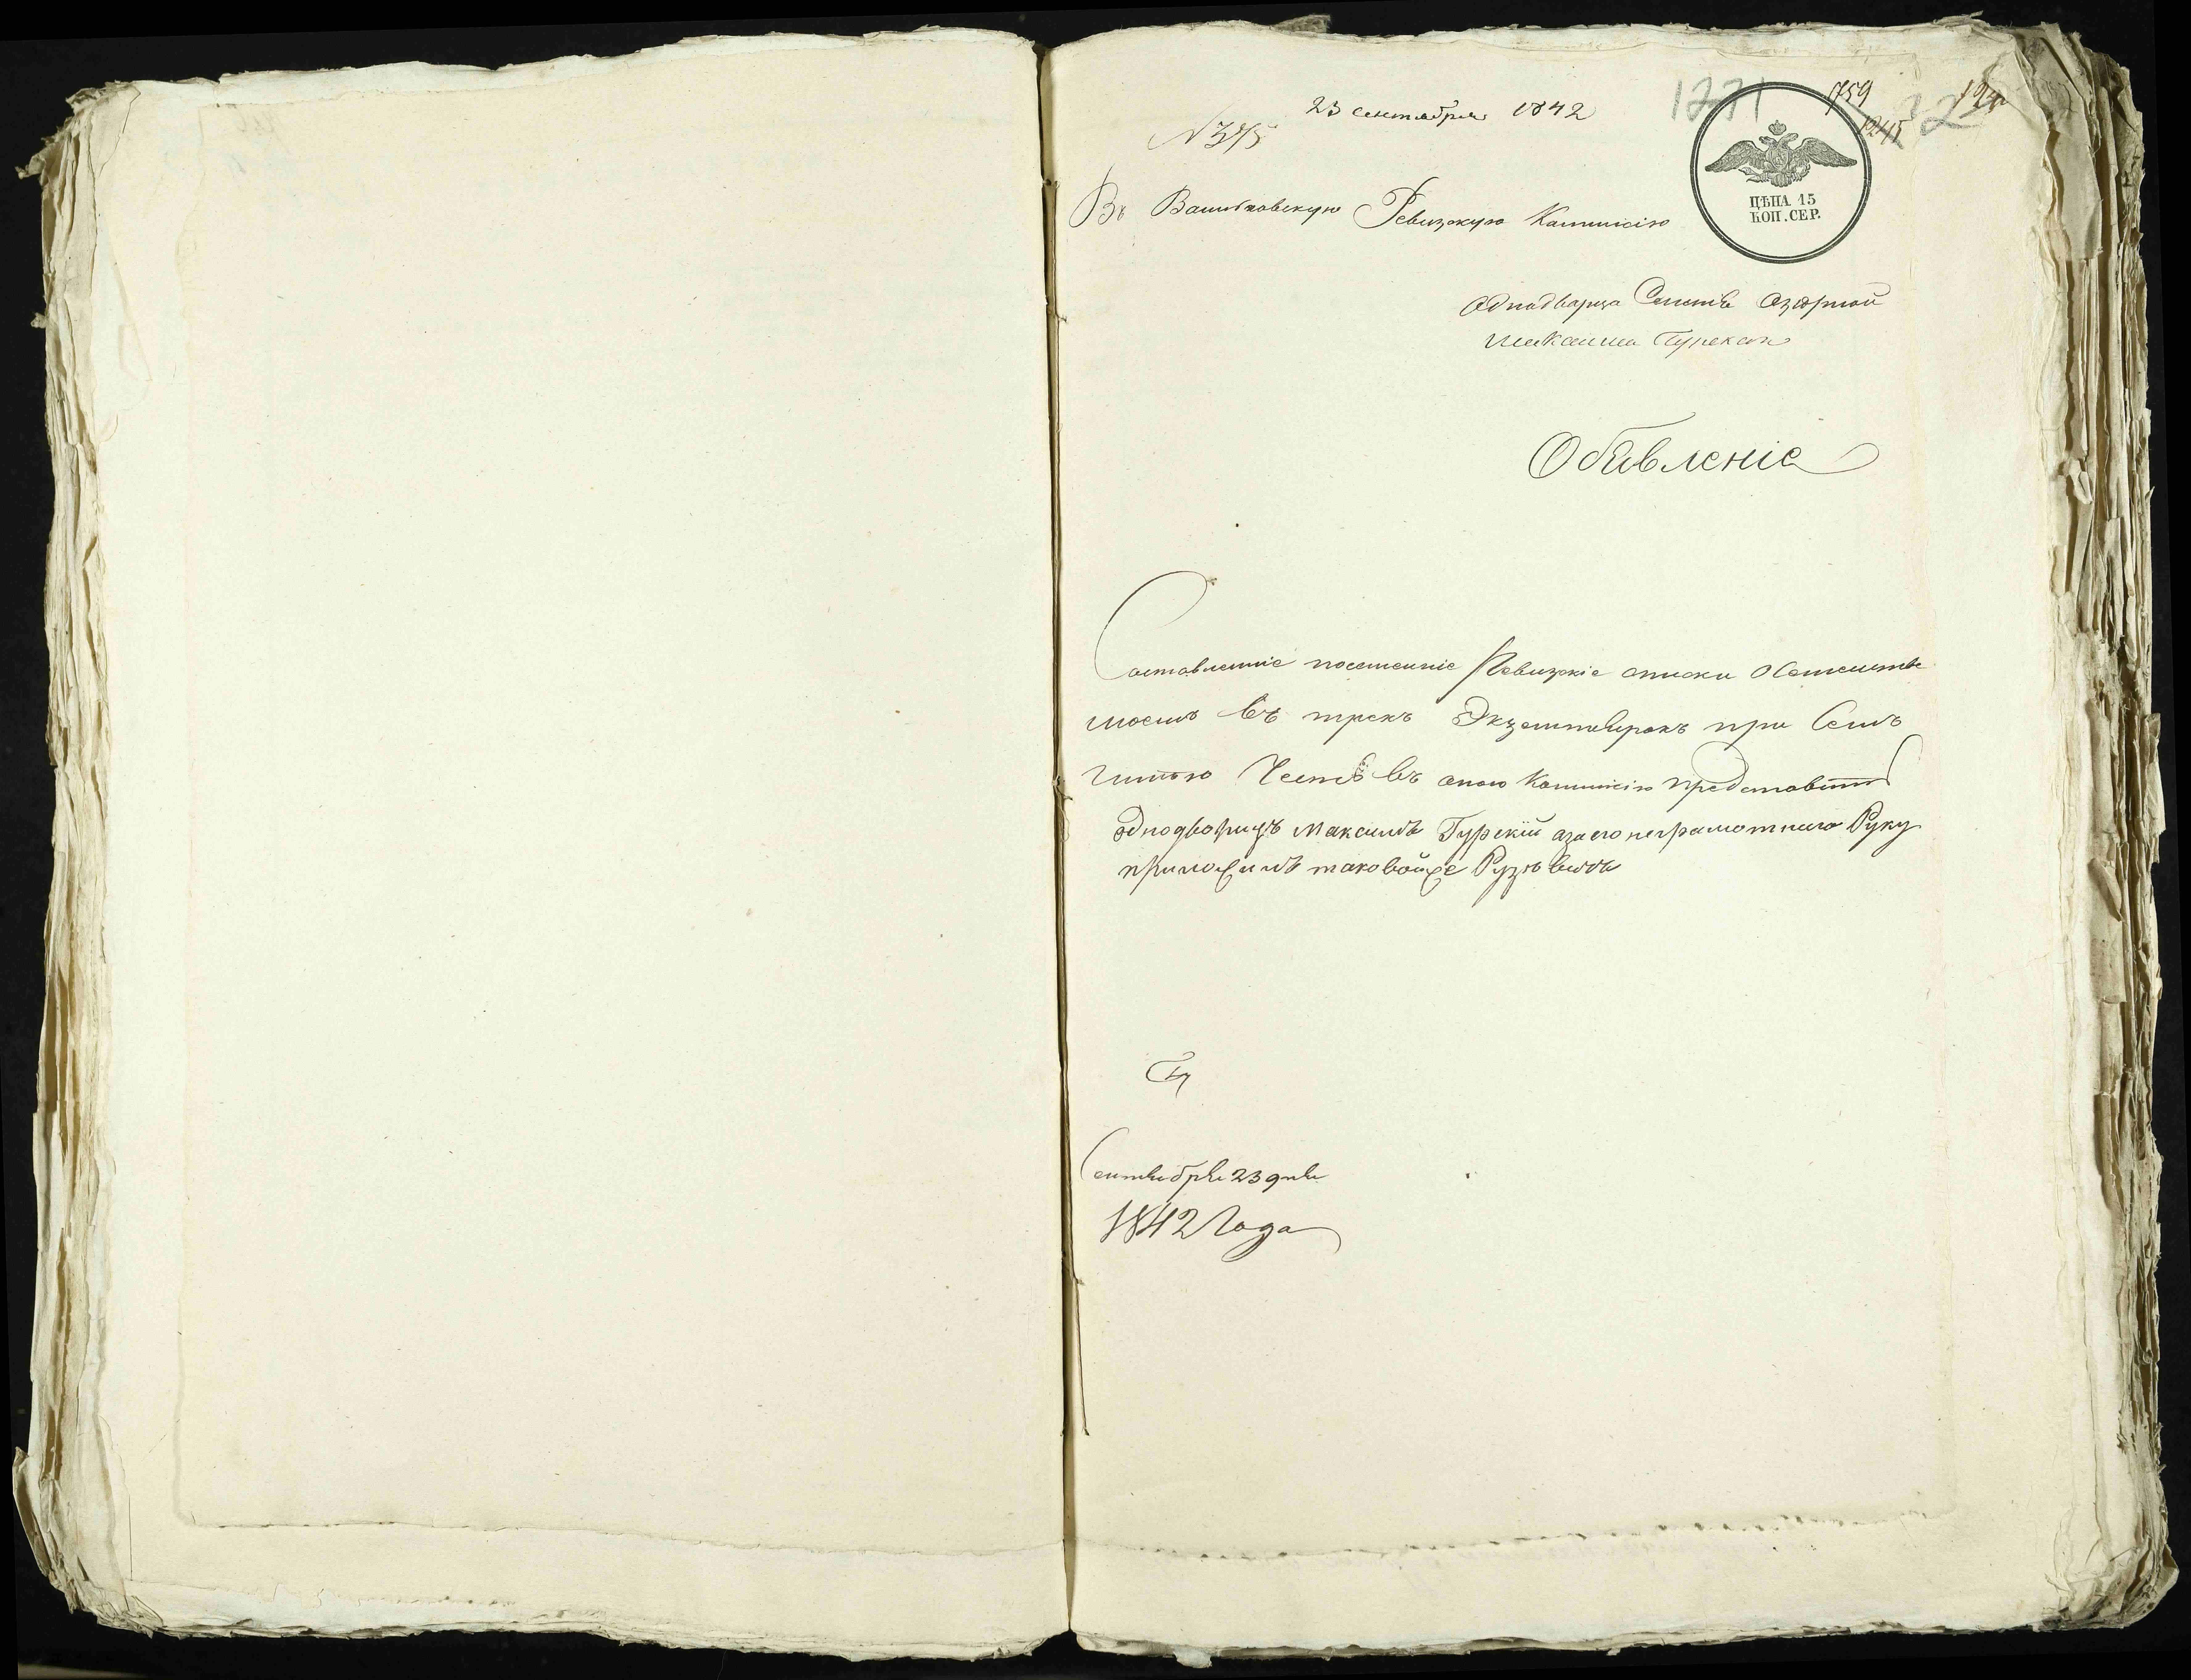 23 сентября 1842
1271
759
194
1245
22
N 375
ЦѢНА 15
КОП. СЕР.
Въ Васильковскую Ревизкую Коммисію
Однодворца
Максима Гурскаго
Объявленіе
Составленніе Ревизкіе списки о семействе
моемъ въ трехъ Экземплярахъ при семъ
имѣю Честь въ оною Коммисію представить
однодворецъ Максимъ Гурскій азаего неграмотнаго Руку
приложилъ таковойже
Сентября 23 дня
1842 Года